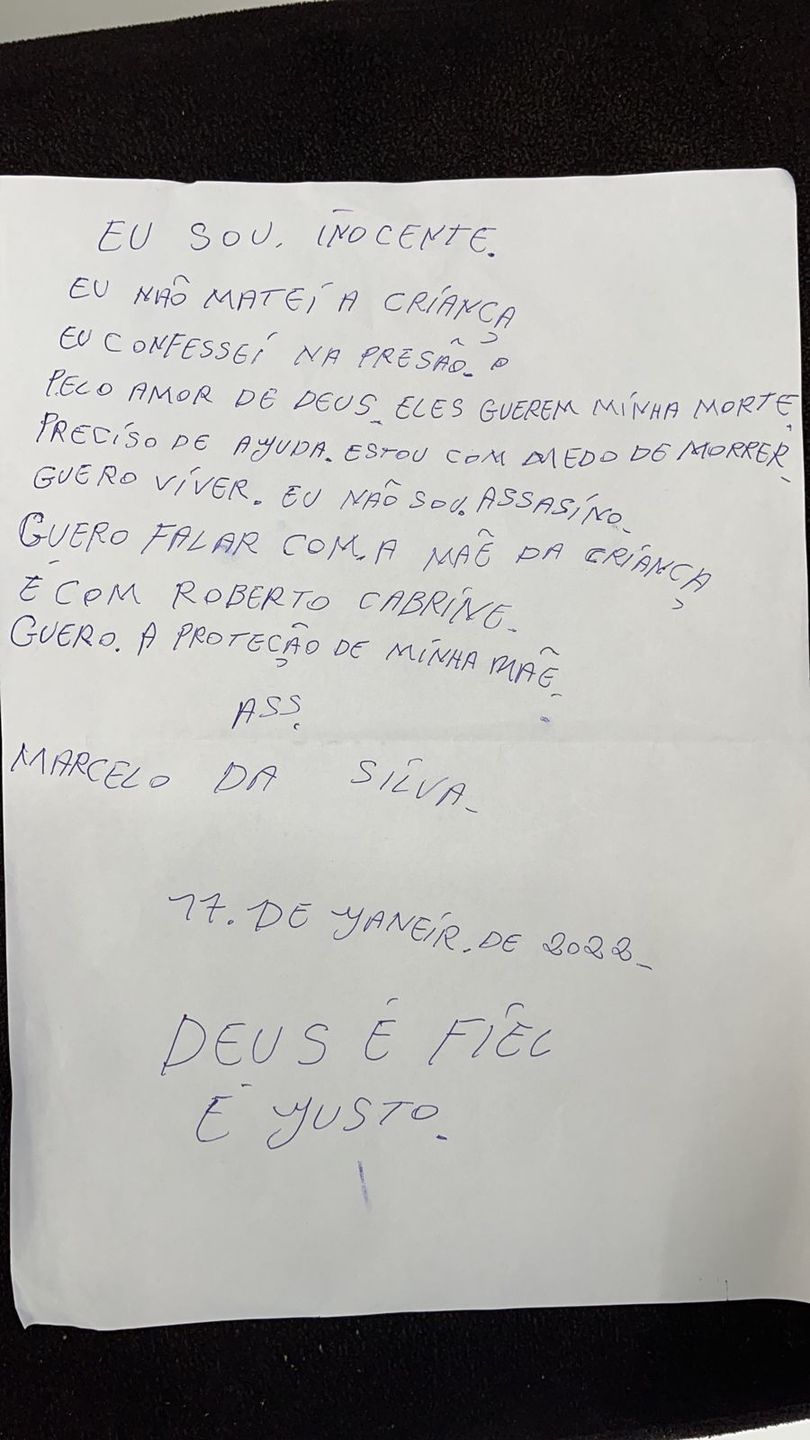 EU SOU. INOCENTE.
EU NAÔ MATEI A CRIANÇA
EU CONFESSEI NA PRESÂO.
PELO AMOR DE DEUS. ELES GUEREM MINHA MORTE.
PRECISO DE AYUDA. ESTOU COM MEDO DE MORRER.
GUERO VIVER. EU NÂO SOU. ASSASINO.
GUERO FALAR COM. A MAÊ DA CRIANÇA
E COM ROBERTO CABRINE.
GUERO. A PROTEÇÂO DE MINHA MAÊ.
ASS.
MARCELO DA SILVA.
17. DE YANEIR. DE 2022.
DEUS É FIEL
E YUSTO.